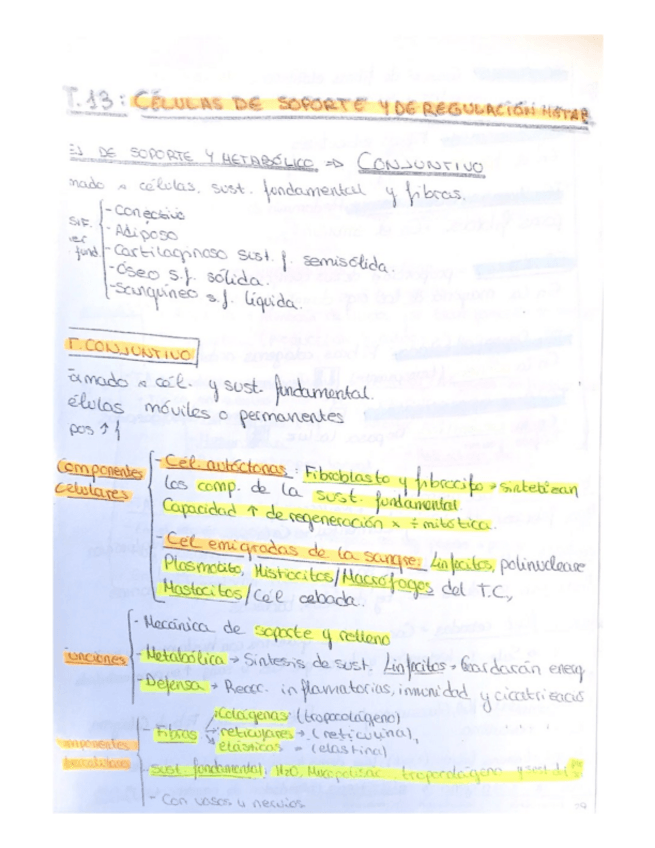 T.13: CÉLULAS DE SOPORTE Y DE REGULACIÓN METAB
DE SOPORTE Y METABÓLICO => CONJUNTIVO
mado x células, sust. fundamental y fibras.
- Conectivo
- Adiposo
- Cartilaginoso sust. f. semisólida.
- Óseo s.f. sólida.
- Sanguíneo s.f. líquida.
T. CONJUNTIVO
rmado x cél. y sust. fundamental.
élulas móviles o permanentes
pos ↑
Componentes Celulares
- Cél. autóctonas: Fibroblasto y fibrocito → sintetizan
los comp. de la sust. fundamental
Capacidad ↑ de regeneración x ÷ mitótica.
- Cél emigradas de la sangre: Linfocitos, polinuclease
Plasmocito, Histiocitos/Macrófagos del T.C.,
Mastocitos/Cél cebada.
unciones
- Mecánica de soporte y relleno
- Metabólica → Síntesis de sust. Linfocitos → Guardarán energ
- Defensa → Reacc. inflamatorias, inmunidad y cicatrizació
mponentes
- Fibras
Colágenas (tropocolágeno)
reticulares → (reticulina),
elásticas = (elastina)
- sust fundamental, H2O, tropocolágeno y sust
- Con vasos y nervios